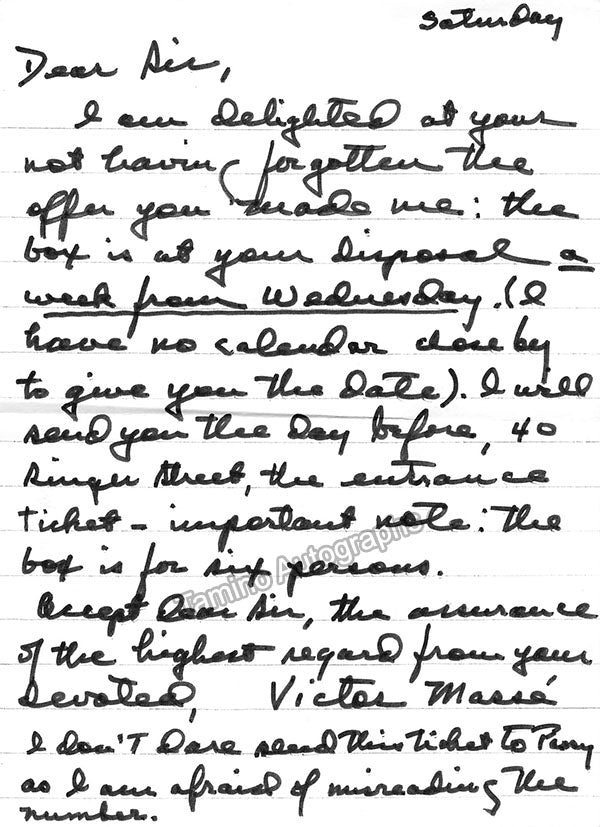 Saturday
Dear Sir,
I am delighted at your
not having forgotten the
offer you made me: the
box is at your disposal a
week from Wednesday. (I
have no calendar close by
to give you the date). I will
send you the day before, 40
Singer Street, the entrance
ticket - important note: the
box is for six persons.
Tamino Autographs
Accept Dear Sir, the assurance
of the highest regard from your
devoted, Victor Massé
I don't dare send this ticket to
as I am afraid of misreading the
number.